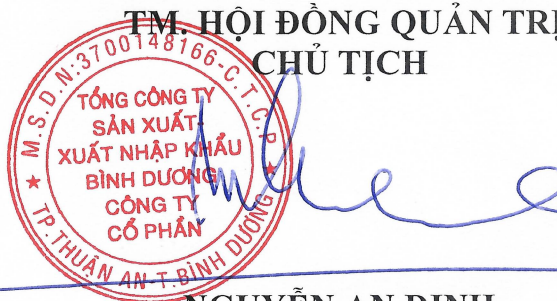 TM. HỘI ĐỒNG QUẢN TRỊ
CHỦ TỊCH
M.S.D.N:3700148166-C.T.C.P
TỔNG CÔNG TY
SẢN XUẤT-
XUẤT NHẬP KHẨU
BÌNH DƯƠNG
CÔNG TY
CỔ PHẦN
TP.THUẬN AN-T.BÌNH DƯƠNG
NGUYỄN AN ĐỊNH